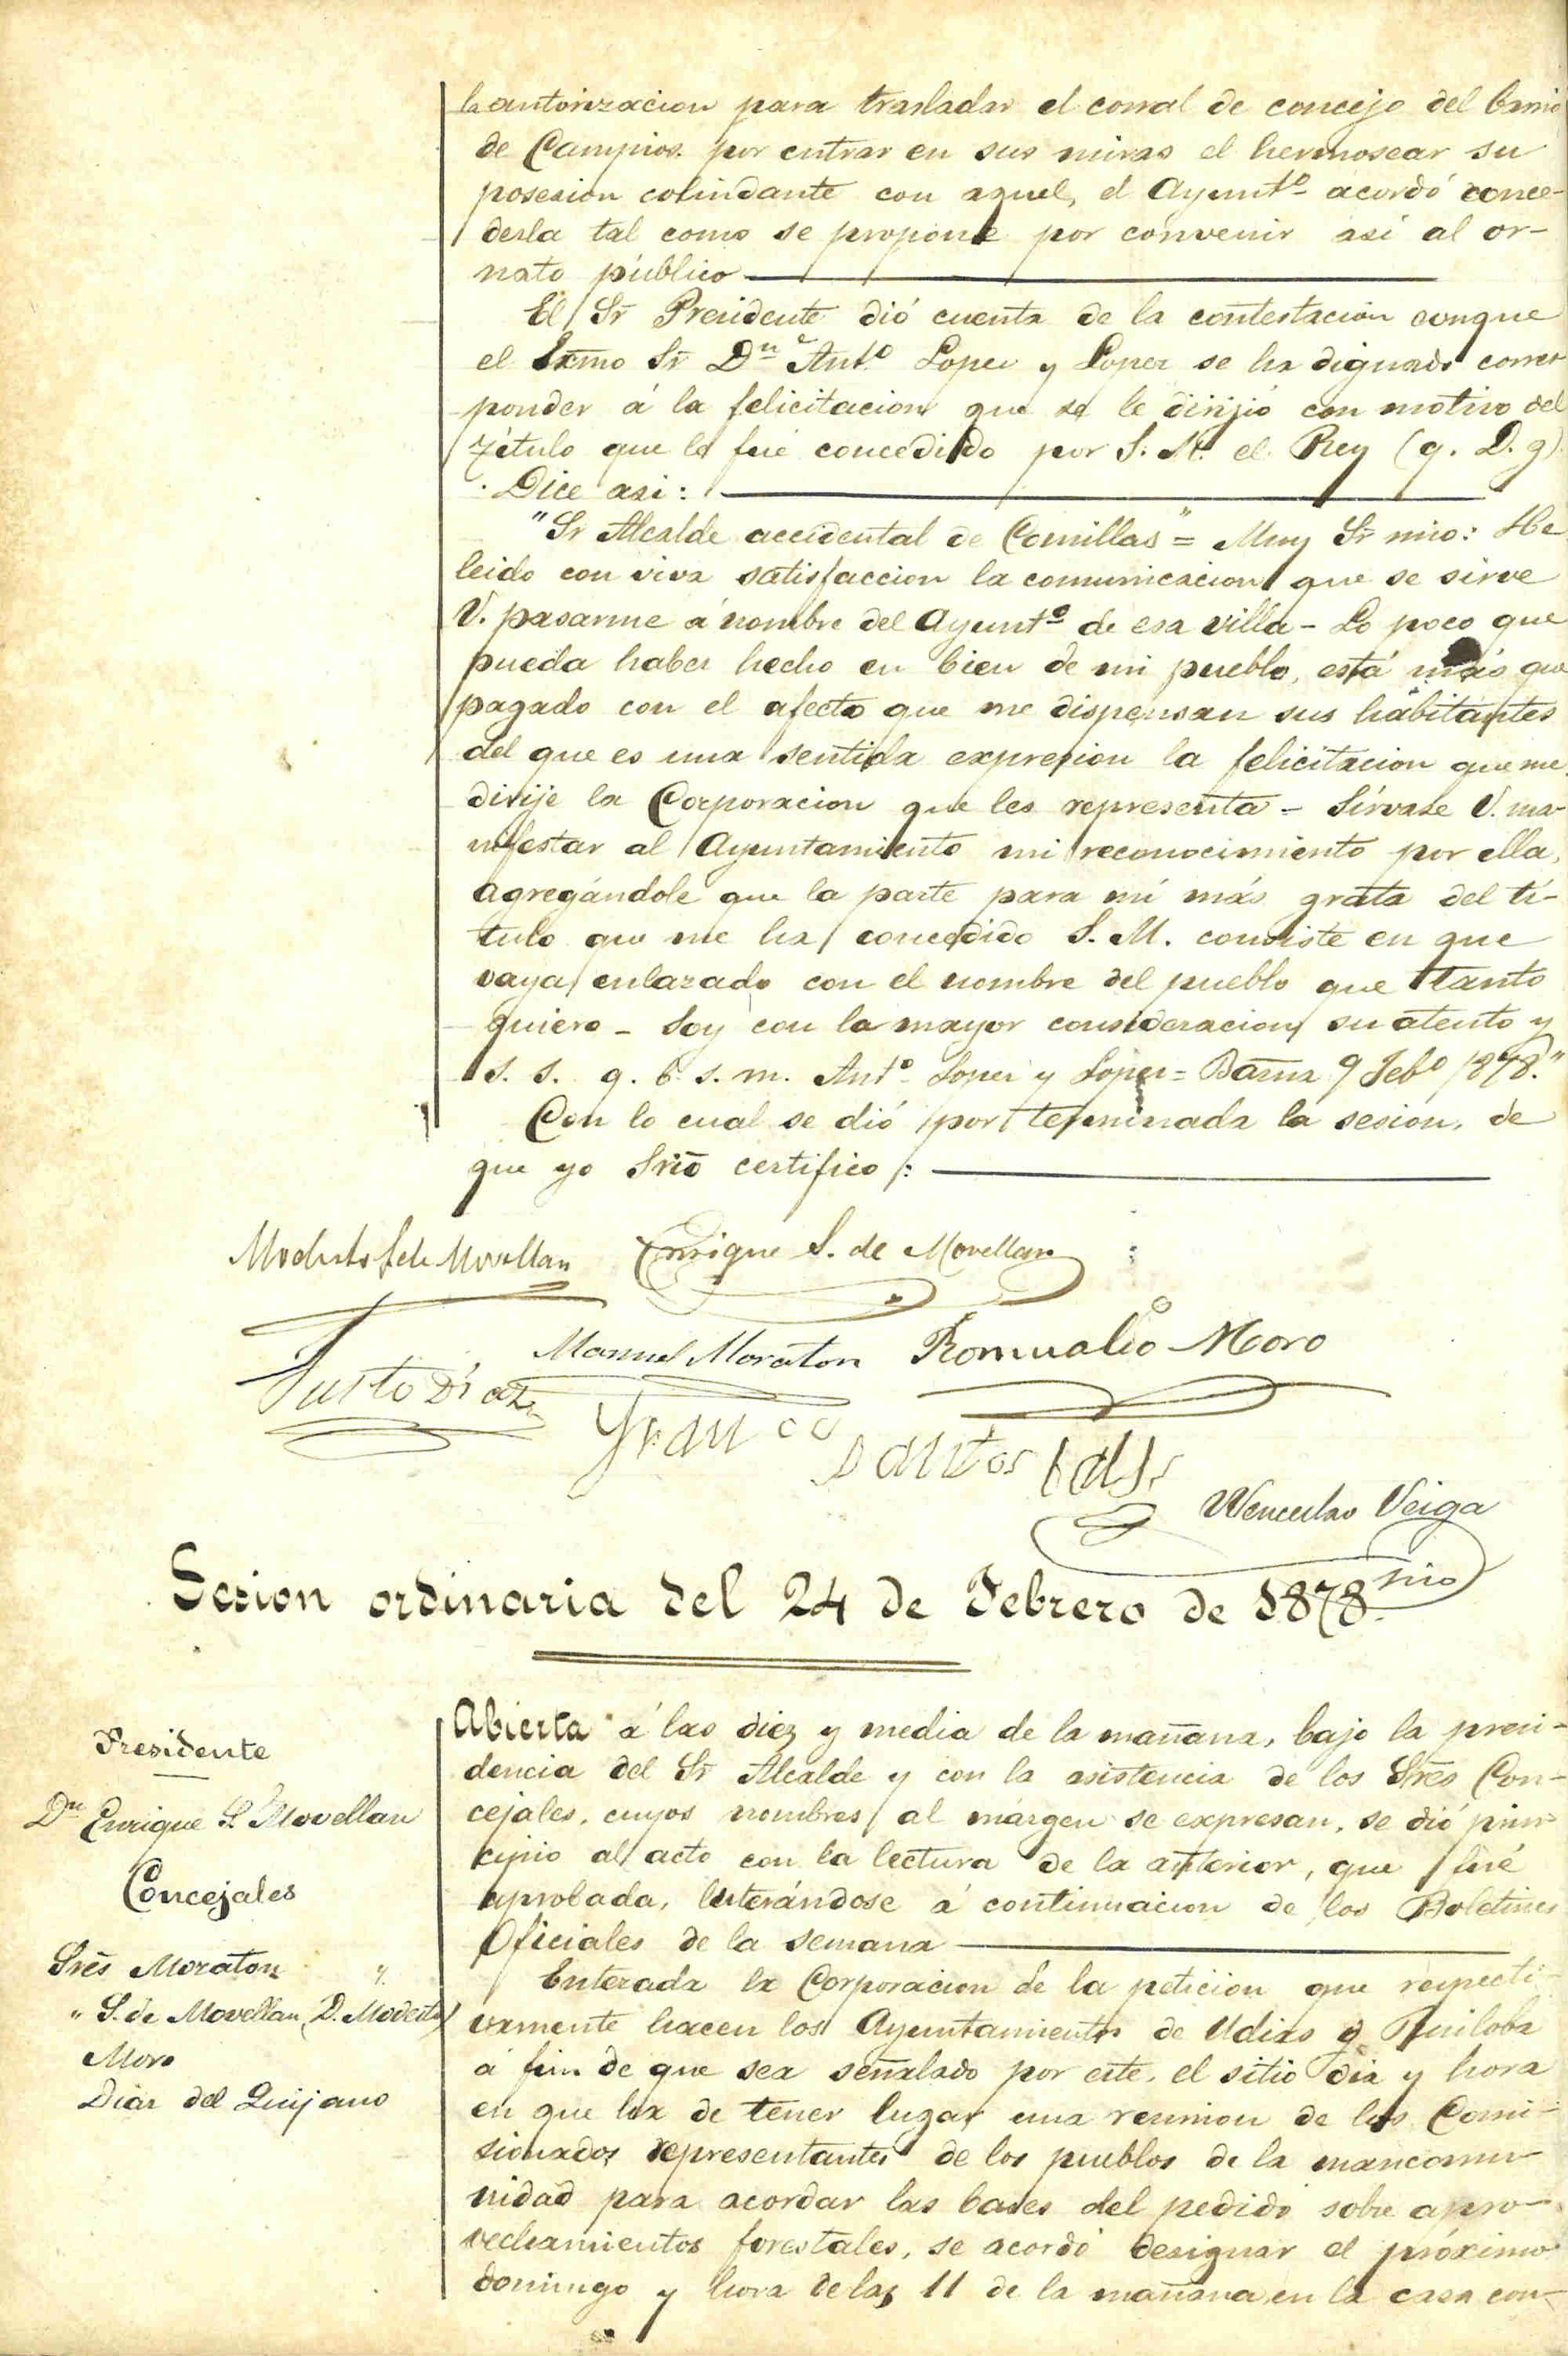 la autorizacion para trasladar el corral de concejo del barrio
de Campios. por entrar en sus miras el hermosear su
posesion colindante con aquel, el Ayuntº acordó conce-
derla tal como se propone por convenir asi al or-
nato público
El Sr Presidente dió cuenta de la contestacion conque
el Exmo Sr Dn Antº Lopez y Lopez se ha dignado corres
ponder á la felicitacion que se le dirijió con motivo del
Título que le fué concedido por S. M. el Rey (q. D. g)
Dice asi:
"Sr Alcalde accidental de Comillas" = Muy Sr mio: He
leido con viva satisfaccion la comunicacion que se sirve
V. pasarme á nombre del Ayuntº de esa villa - Lo poco que
pueda haber hecho en bien de mi pueblo, está más que
pagado con el afecto que me dispensan sus habitantes
del que es una sentida expresion la felicitacion que me
dirije la Corporacion que les representa - Sírvase V. ma-
nifestar al Ayuntamiento mi reconocimiento por ella,
agregándole que la parte para mí más grata del tí-
tulo que me ha concedido S. M. consiste en que
vaya enlazado con el nombre del pueblo que tanto
quiero - Soy con la mayor consideracion su atento y
s. s. q. b. s. m. Antº Lopez y Lopez = Barna 9 Febº 1878."
Con lo cual se dió por terminada la sesion, de
que yo Srio certifico:
Modesto S. de Movellan Enrique S. de Movellan
Manuel Moraton Romualdo Moro
Justo Diaz
Franco
Santos
Wenceslao Veiga
Srio
Sesion ordinaria del 24 de Febrero de 1878.
Presidente
Dn Enrique S. Movellan
Concejales
Sres Moraton "
" S. de Movellan (D. Modesto)
Moro
Diaz del Quijano
Abierta á las diez y media de la mañana, bajo la presi-
dencia del Sr Alcalde y con la asistencia de los Sres Con-
cejales, cuyos nombres al márgen se expresan, se dió prin-
cipio al acto con la lectura de la anterior, que fué
aprobada, enterándose á continuacion de los Boletines
Oficiales de la semana
Enterada la Corporacion de la peticion que respecti-
vamente hacen los Ayuntamientos de Udias y Ruiloba
á fin de que sea señalado por este, el sitio dia y hora
en que ha de tener lugar una reunion de los Comi-
sionados representantes de los pueblos de la mancomu-
nidad para acordar las bases del pedido sobre apro-
vechamientos forestales, se acordó designar el próximo
domingo y hora de las 11 de la mañana en la casa con-